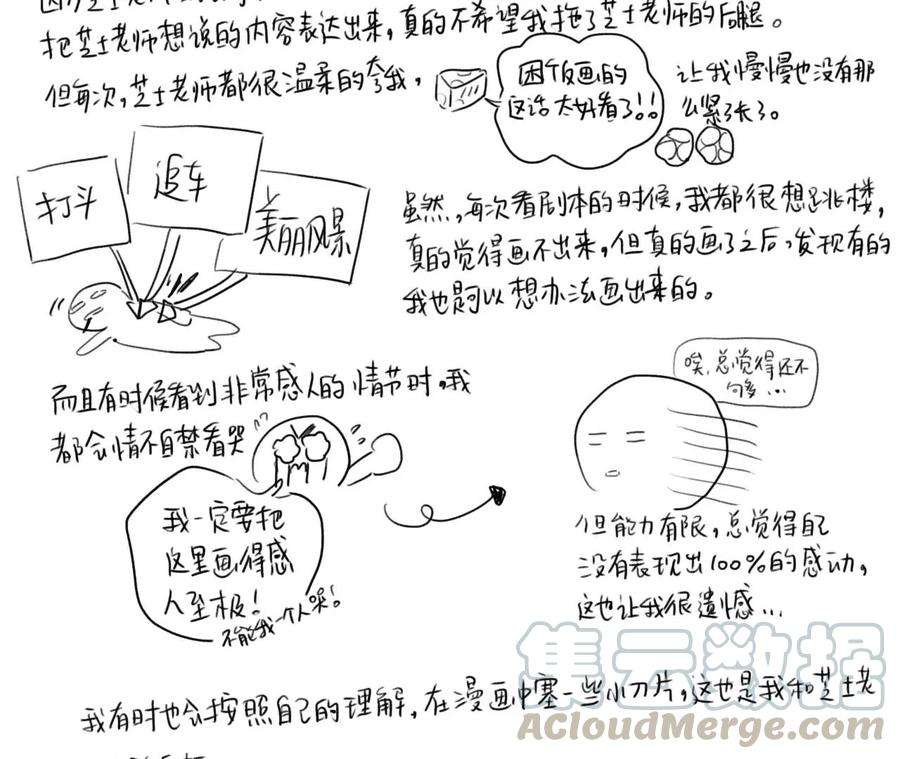 把芝士老师想说的内容表达出来，真的不希望我拖了芝士老师的后腿。
但每次，芝士老师都很温柔的夸我，
困饭画的
这话太好看了!!
让我慢慢也没有那
么紧张了。
打斗
追车
美丽风景
虽然，每次看剧本的时候，我都很想跳楼，
真的觉得画不出来，但真的画了之后，发现有的
我也是可以想办法画出来的。
而且有时候看到非常感人的情节时，我
都会情不自禁看哭
我一定要把
这里画得感
人至极！
不能我一个人哭！
唉，总觉得还不
够多...
但能力有限，总觉得自己
没有表现出100%的感动，
这也让我很遗憾...
我有时也会按照自己的理解，在漫画中塞一些小刀片，这也是我和芝士老
集云数据
ACloudMerge.com